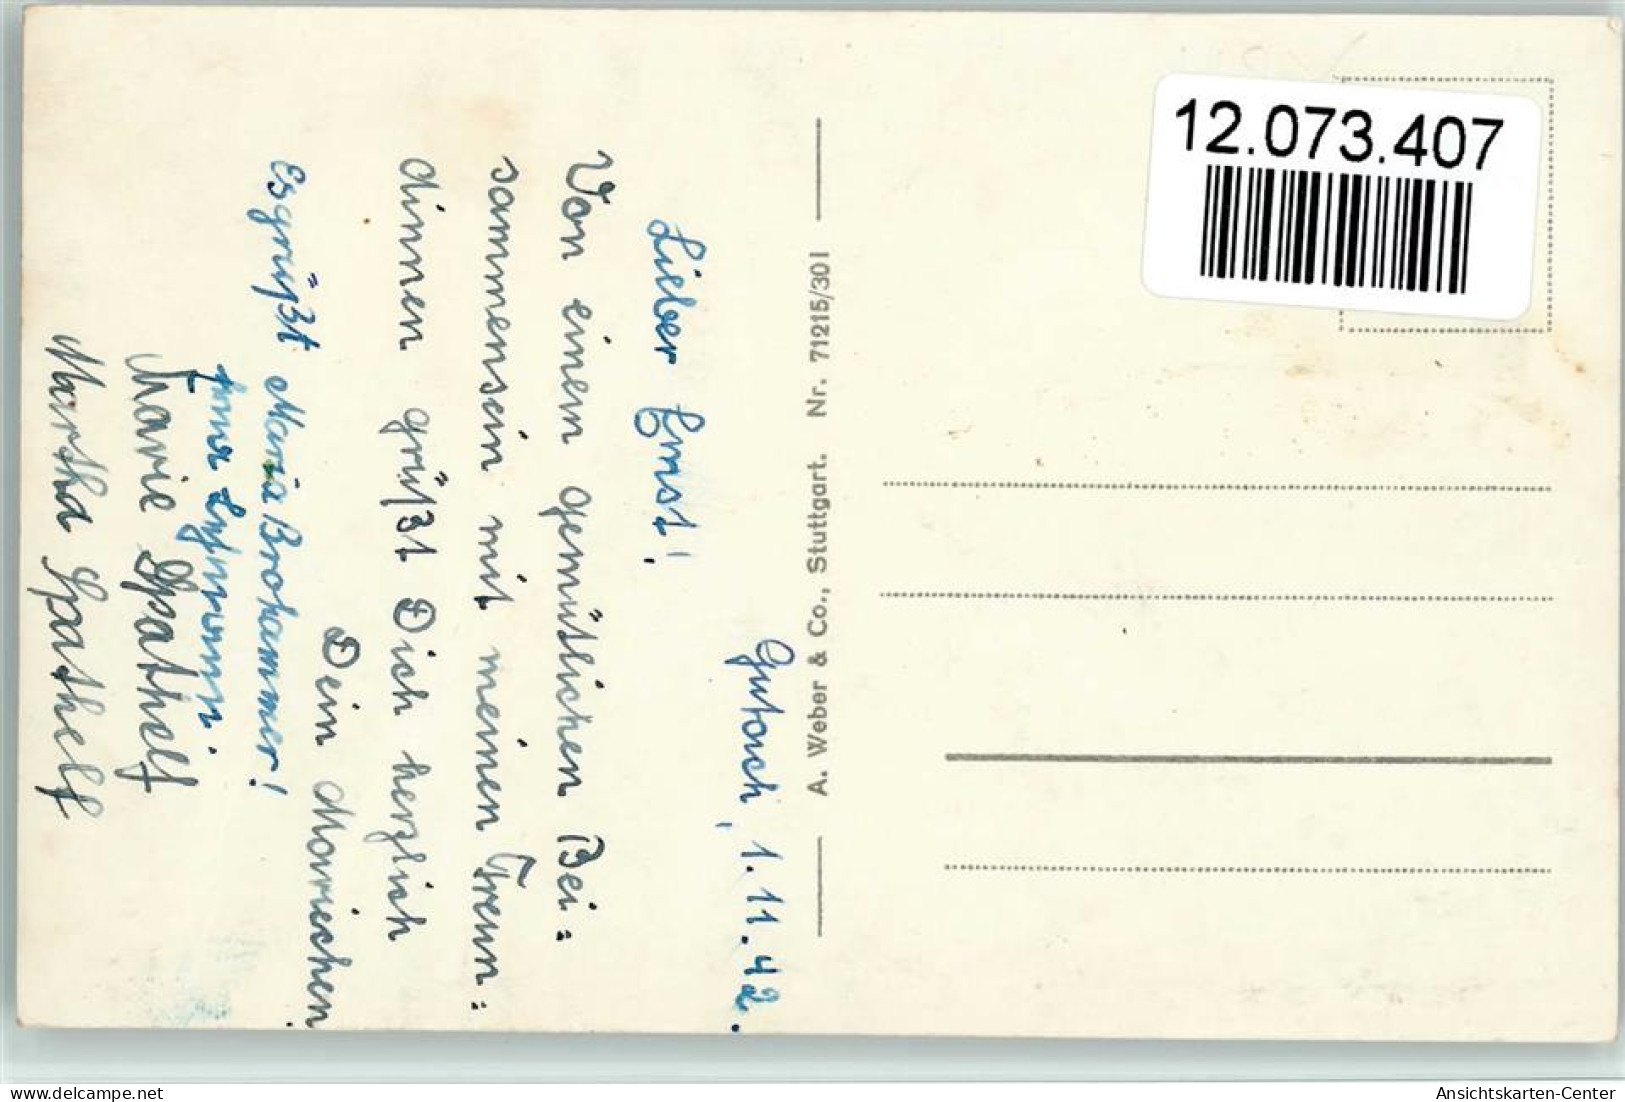 Gutach, 1.11.42.
Lieber Ernst!
Von einem gemütlichen Bei=
sammensein mit meinen Freun=
dinnen grüßt Dich herzlich
Dein Mariechen.
Es grüßt Maria Brohammer!
Marie Spathelf
Martha Spathelf
A. Weber & Co., Stuttgart. Nr. 71215/301
12.073.407
delcampe.net
Ansichtskarten-Center